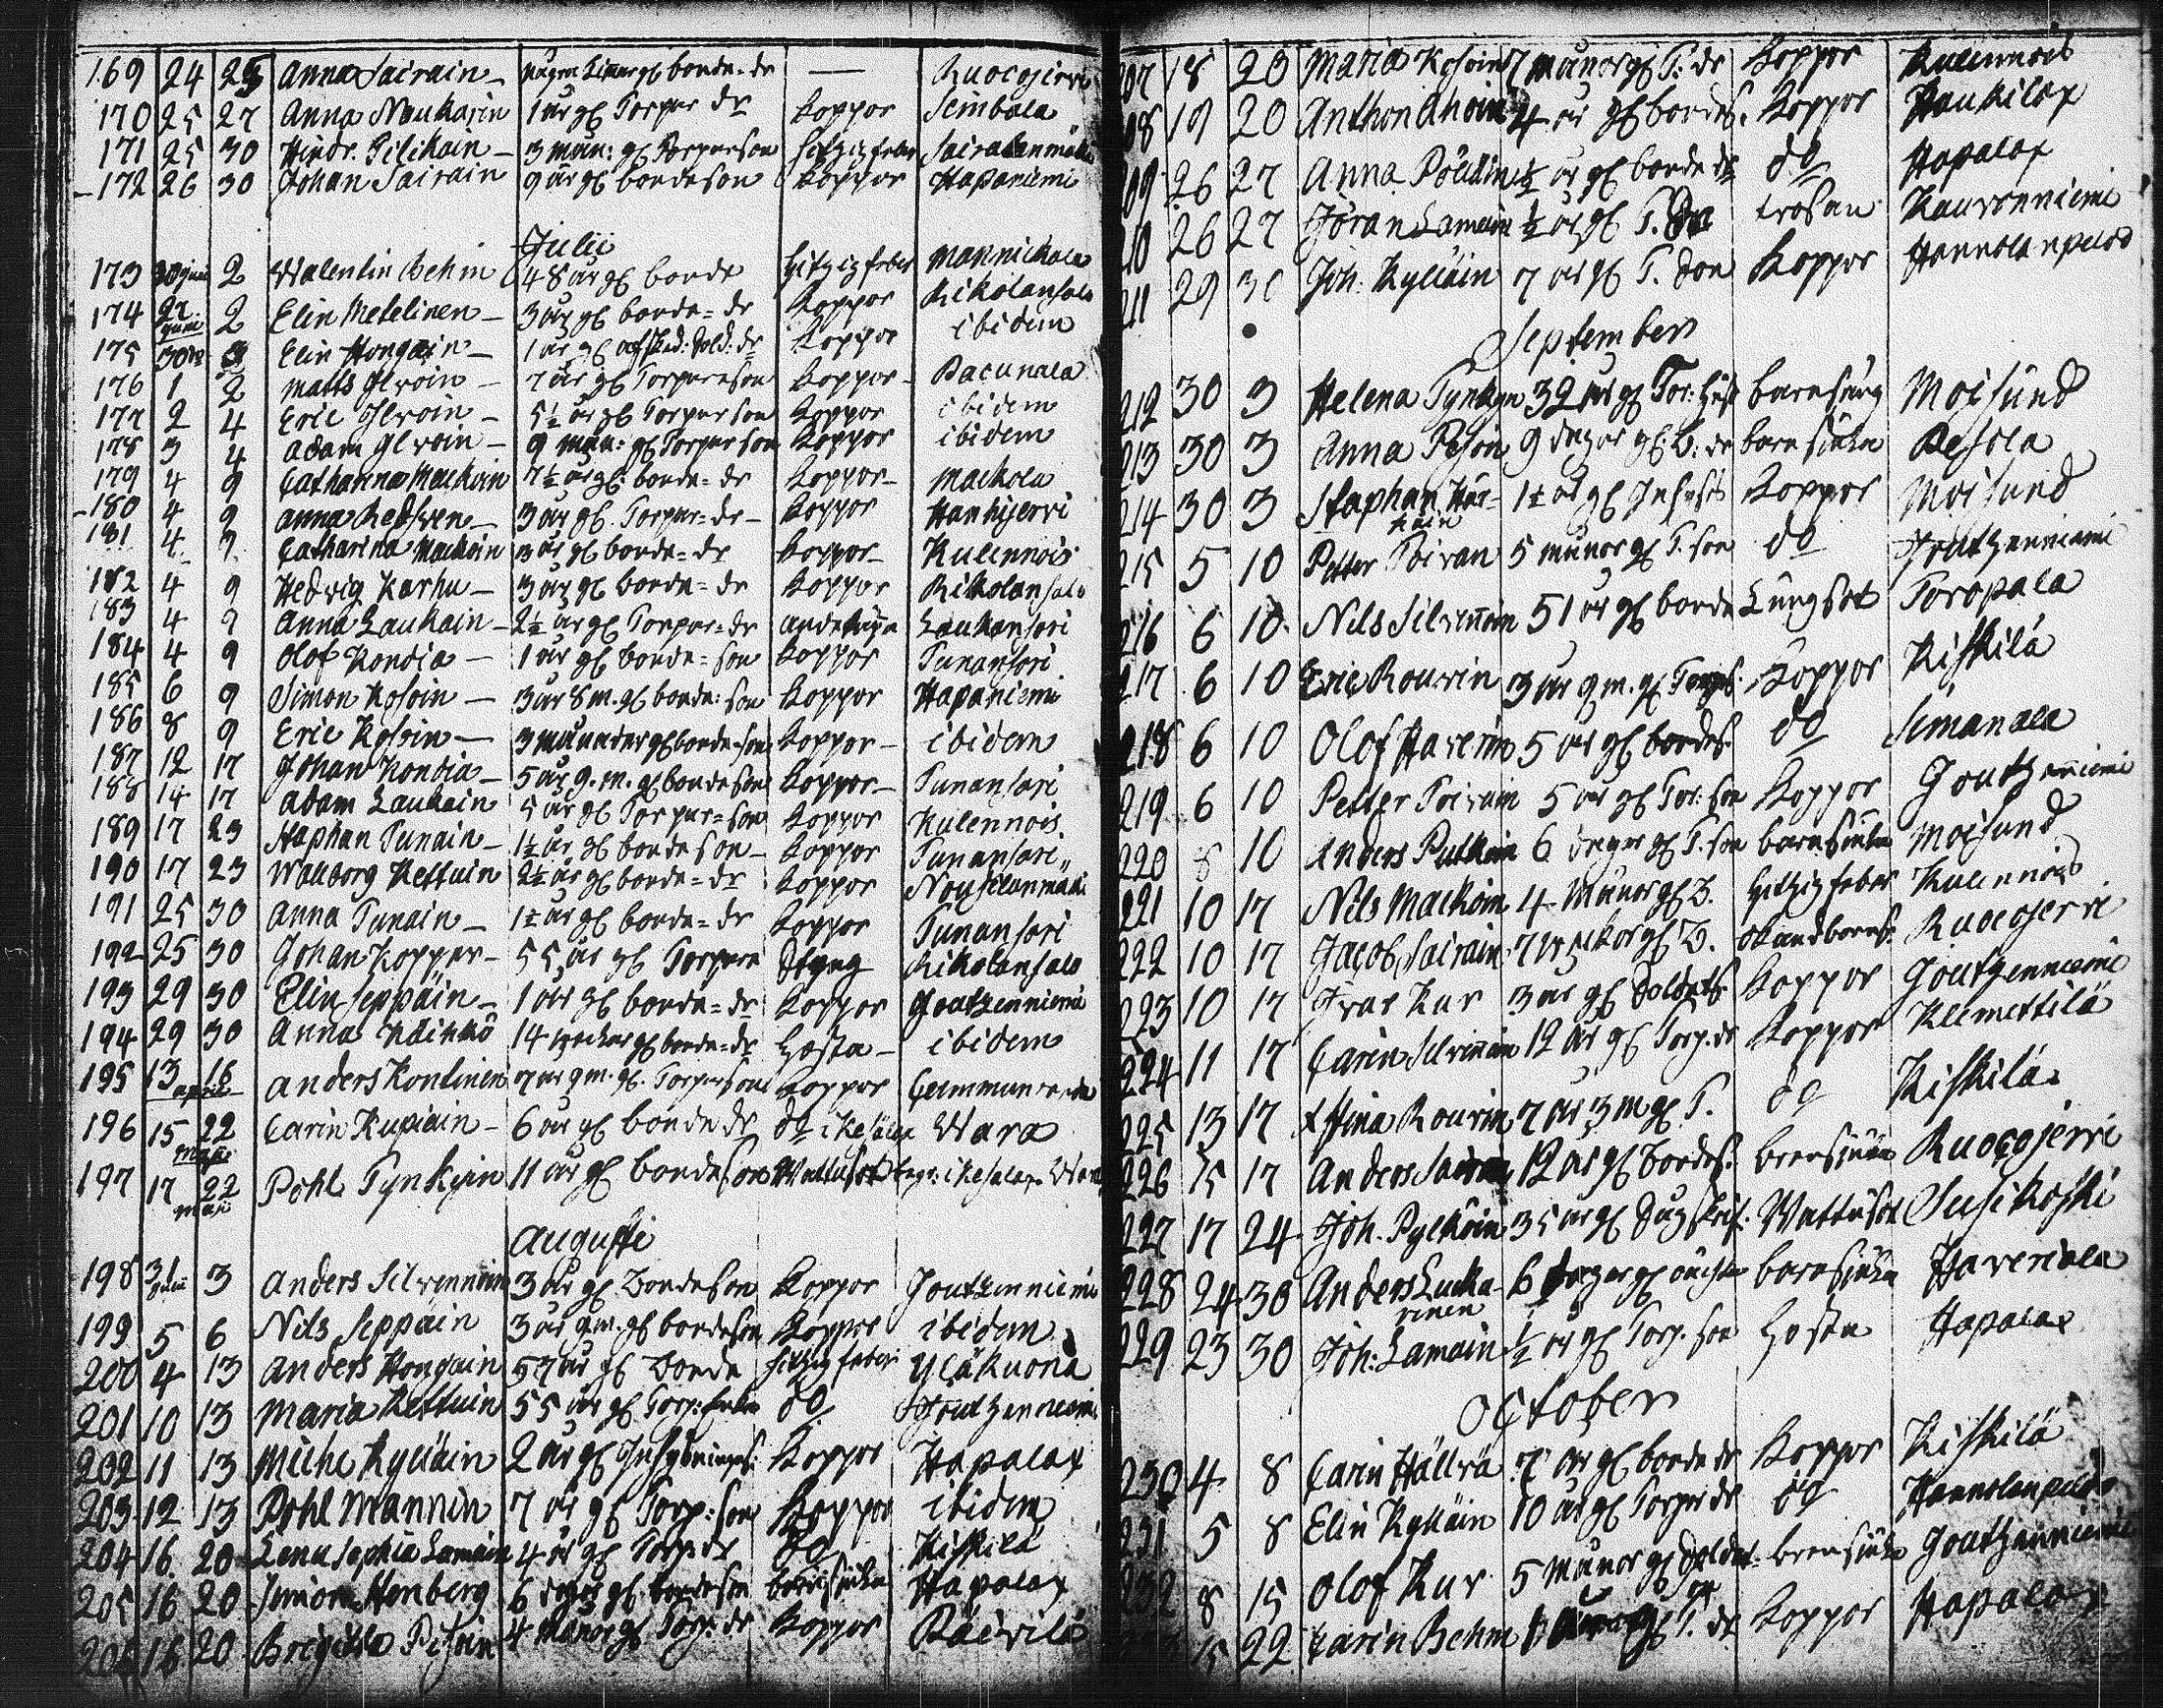 169 24 25 Anna Sairain några timar gl bonde dr — Ruocojerwi
170 25 27 Anna Naukarin 1 år gl Torpar dr koppor Seimbola
171 25 30 Hindr. Pilikain 3 mån: gl Torparson hitzig feber Sairalanmäki
172 26 30 Johan Sairain 9 år gl bondeson koppor Hapaniemi
Julii
173 30 juni 2 Walentin Behm 48 år gl bonde hitzig feber Mannickala
174 27 juni 2 Elin Metelinen 3 år gl bonde dr koppor Rikolansalo
175 30 Elin Hongain 1 år gl afsked: Sold: dr koppor ibidem
176 1 2 Matts Ilwoin 7 år gl Torpareson koppor Pacunala
177 2 4 Eric Ilwoin 5½ år gl Torparson koppor ibidem
178 3 4 Adam Ilwoin 9 mån: gl Torparson koppor ibidem
179 4 9 Catharina Mackoin 7½ år gl: bonde dr koppor Mackola
180 4 9 Anna Redswen 3 år gl. Torpar dr koppor Hankijerwi
181 4 9 Catharina Mackoin 3 år gl bonde dr koppor Kulennois
182 4 9 Hedwig Karhu 3 år gl bonde dr koppor Rikolansalo
183 4 9 Anna Laukain 2½ år gl Torpar dr Laukansari
184 4 9 Olof Kondia 1 år gl bonde son koppor Tunansari
185 6 9 Simon Kosoin 3 år 8 m. gl bonde: son koppor Hapaniemi
186 8 9 Eric Kosoin 3 månader gl bonde son koppor ibidem
187 12 17 Johan Kondia 5 år 9. m. gl bondeson koppor Tunansari
188 14 17 Adam Laukain 5 år gl Torpar son koppor Kulennois
189 17 23 Staphan Tunain 1½ år gl bondeson koppor Tunansari
190 17 23 Walborg Kettuin 2½ år gl bonde dr koppor Nousilanmäki
191 25 30 Anna Tunain 1½ år gl bonde dr koppor Tunansari
192 25 30 Johan Kopper 55 år gl Torpare Styng Rikolansalo
193 29 30 Elin Seppäin 1 år gl bonde dr koppor Joutzenniemi
194 29 30 Anna 14 weckor gl bonde dr Hosta ibidem
195 13 16 april Anders Kontinen 7 år 9 m. gl. Torparson koppor
196 15 22 maji Carin Kupiain 6 år gl bonde dr do i Kesälax Wara
197 17 22 maji Pohl Tynkyin 11 år gl bondeson Wattusot begr: i Kesalax
Augusti
198 31 3 Anders Silwennoin 3 år gl Bondeson koppor Joutzenniemi
199 5 6 Nils Seppäin 3 år 9 m. gl bondeson koppor ibidem
200 4 13 Anders Hongain 57 år gl Bonde hitzig feber Yläkuona
201 10 13 Maria Kettuin 55 år gl Torp: do Joutzenniemi
202 11 13 Michel Kylläin 2 år gl koppor Hapalax
203 12 13 Pohl Mannin 7 år gl Torp: son koppor ibidem
204 16. 20 Lena Sophia Lamain 4 år gl Torp: dr do Kiskilä
205 16 20 Simon Stenberg 6 dagar gl. bondeson barnsjuka Hapalax
206 16 20 Brigitta Pesoin 4 Månor gl Torp: dr koppor Päiwilä
207 18 20 Maria Kosoin 7 månor gl T: dr koppor Kulennois
208 19 20 Anthon Ahoin 4 år gl bondes. koppor Haukilax
209 26 27 Anna Pöllin ½ år gl bonde dr do Hapalax
210 26 27 Jöran Lamain ½ år gl T. son trosan Kauvonniemi
211 29 30 Joh: Kylläin 7 år gl T. son koppor Hannolanpeldo
September
212 30 3 Helena Tynkyn 32 år gl Tor: hust barnsäng Moisund
213 30 3 Anna Pesoin 9 dagar gl: B: dr barnsjuka Pesola
214 30 3 Staphan Härkäin 1½ år gl Inhyses koppor Moisund
215 5 10 Petter Toivan 5 månor gl T. son do Joutzenniemi
216 6 10 Nils Silvennoin 51 år gl bonde Lungsot Toropala
217 6 10 Eric Rouvin 3 år 9 m. gl Torps: koppor Kiskilä
218 6 10 Olof Haverin 5 år gl bondes. do Simanala
219 6 10 Petter Toivain 5 år gl Tor: son koppor Joutzenniemi
220 8 10 Anders Putkoin 6 dagar gl T. son barnsjuka Moisund
221 10 17 Nils Mackoin 4 månor gl B. hitzig feber Kulennois
222 10 17 Jacob Sairain 7 weckor gl B. Ruocojerwi
223 10 17 Ivar Kur 3 år gl Soldats koppor Joutzenniemi
224 11 17 Carin Silvennoin 12 år gl Torp. dr koppor Klemettilä
225 13 17 Stina Rouvin 7 år 3 m gl T. do Kiskilä
226 15 17 Anders Sairain 12 år gl bondes. brensjuka Ruocojerwi
227 17 24 Joh. Pylkoin 35 år gl Wattusot Susikoski
228 24 30 Anders Luckarinen 6 dagar gl barnsjuka Haveriala
229 23 30 Joh: Lamain ½ år gl Torp. son Hosta Hapalax
October
230 4 8 Carin Hällvä 7 år gl bonde dr koppor Kiskilä
231 5 8 Elin Kylläin 10 år gl Torpar dr do Hannolanpeldo
232 8 15 Olof Kur 5 månor gl Soldat: son brensjuka Joutzenniemi
15 22 Carin Behm gl T. dr koppor Hapalax